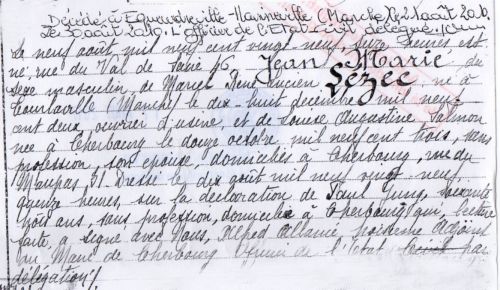 Décédé à Equeurdreville-Hainneville (Manche) le 21 août 2010.
Le 30 août 2010. L'Officier de l'Etat Civil délégué
Le neuf août mil neuf cent vingt neuf, seize heures est
né, rue du Val de Saire 96 Jean Marie du
sexe masculin de Marcel René Lucien Lézec né à
Tourlaville (Manche) le dix huit décembre mil neuf
cent deux, ouvrier d'usine et de Louise Augustine Salmon
née à Cherbourg le douze octobre mil neuf cent trois, sans
profession, son épouse, domiciliés à Cherbourg, rue du
Maupas, 31. Dressé le dix août mil neuf cent vingt neuf
quinze heures, sur la déclaration de Paul Jung, soixante
trois ans, sans profession, domicilié à Cherbourg, qui, lecture
faite, a signé avec Nous, Alfred troisième Adjoint
au Maire de Cherbourg Officier de l'Etat Civil par
délégation.